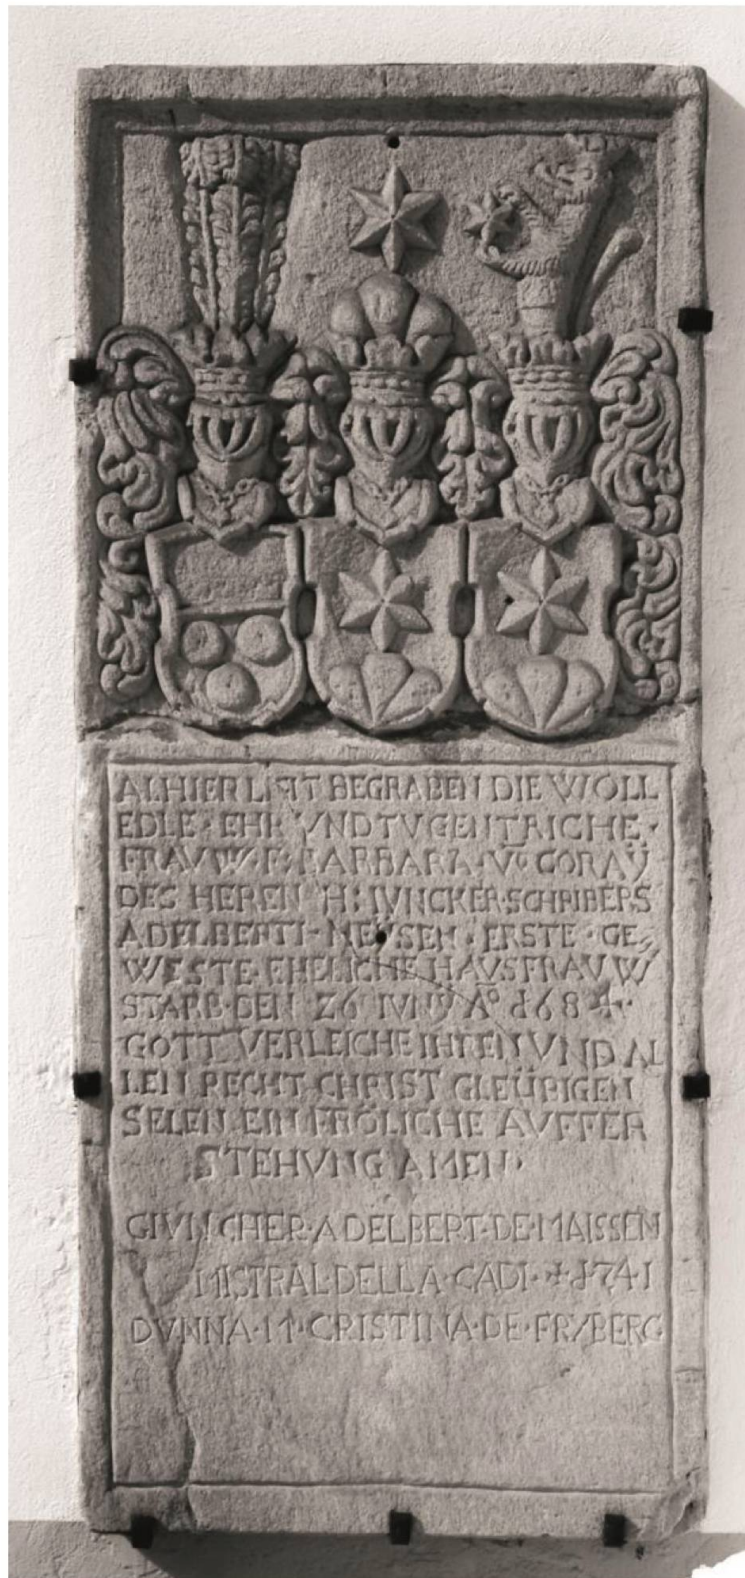 ALHIER LIGT BEGRABEN DIE WOLL
EDLE · EHR VND TVGENTRICHE ·
FRAVW · F · BARBARA · Vō GORAŸ
DES HEREN H: IVNCKER · SCHRIBERS
ADELBERTI · MEŸSEN · ERSTE · GE=
WESTE · EHELICHE HAVSFRAVW
STARB · DEN 26 IVNŸ Aº 1684 ·
GOTT VERLEICHE IHREN VND AL
LEN RECHT CHRIST GLEÜBIGEN
SELEN EIN FRÖLICHE AVFFER
STEHVNG AMEN ·
GIVNCHER · ADELBERT · DE · MAISSEN
MISTRAL · DELLA · CADI · + 1741
DVNNA · CRISTINA · DE · FRYBERG